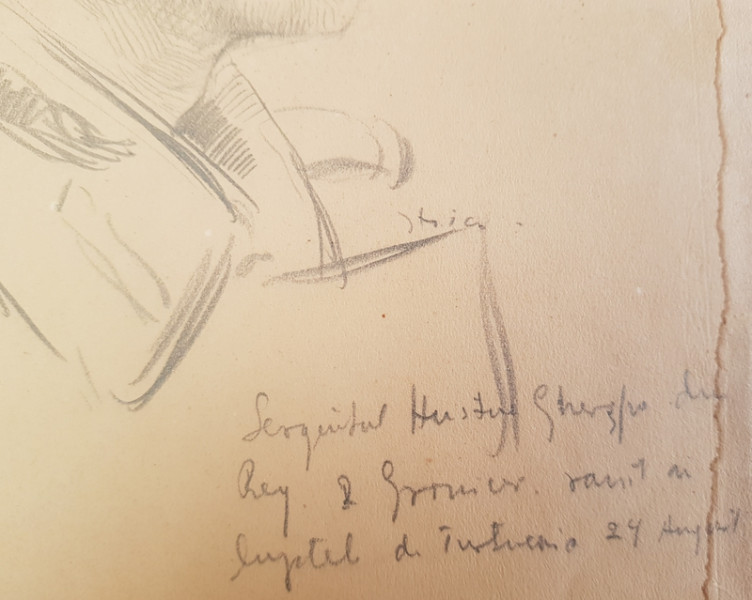 Sergentul Hustiu Gheorghe din
Reg. 2 Graniceri. ranit in
luptele de Turtucaia 24 August